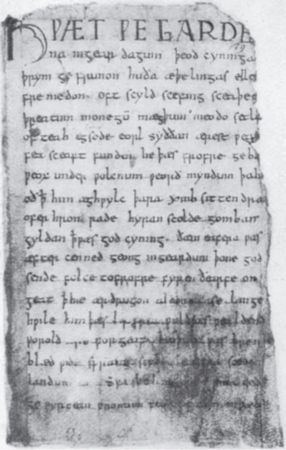 HǷÆT ǷE GARDE
na ingear dagum þeod cyninga
þrym ge frunon huða æþelingas elle
fre medon. oft scyld scefing sceaþe
þreatum monegū mægþum meodo setla
of teah egsode eorl syððan ærest ƿear
fea sceaft funden he þæs frofre geba
ƿeox under ƿolcnum ƿeorð myndum þah
oð ꝥ him æghƿylc þara ymb sittendra
ofer hron rade hyran scolde gomban
gyldan ꝥ ƿæs god cyning. ðæm eafera ƿæs
æfter cenned geong ingeardum þone god
sende folce tofrofre fyren ðearfe on
geat ꝥ hie ær drugon aldor ase. lange
hƿile him þæs frea ƿuldres ƿealdend
ƿorold are for geaf
blæd ƿide sprang
landum in
ge ƿyrcean